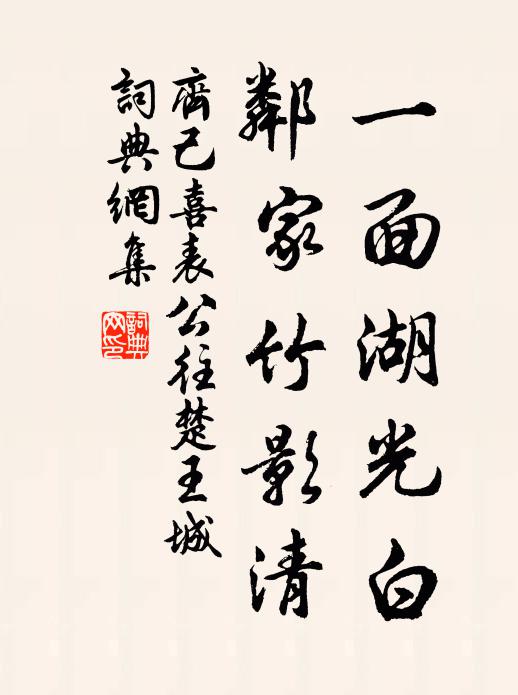 一面湖光白
鄰家竹影清
齊己喜表公往楚王城
詞典網集
詞典網印